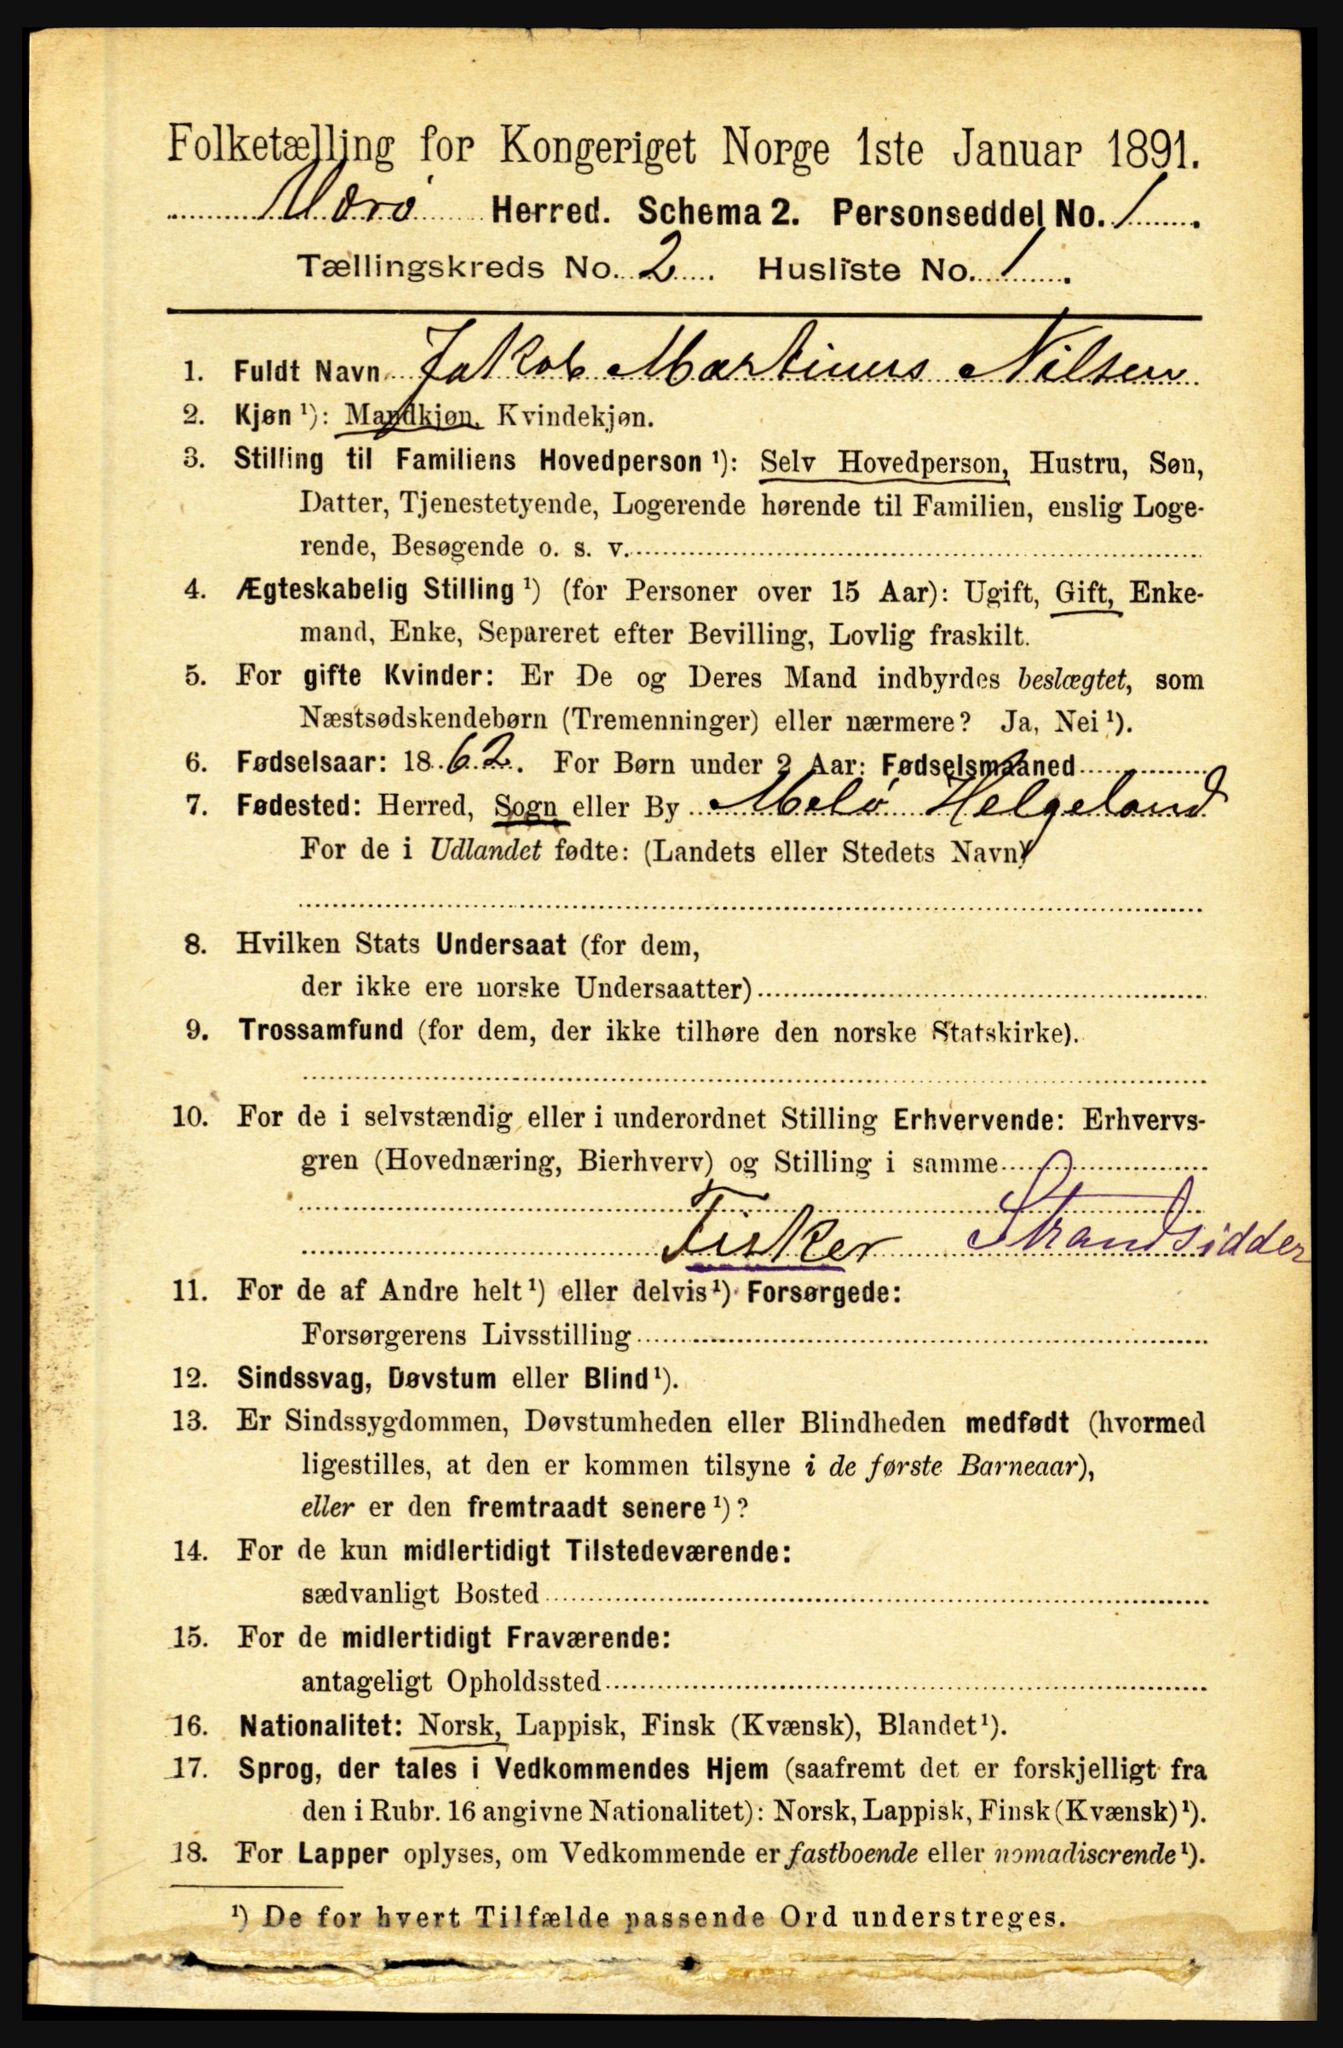 Folketælling for Kongeriget Norge 1ste Januar 1891.
Værø Herred. Schema 2. Personseddel No. 1.
Tællingskreds No. 2. Husliste No. 1.
1. Fuldt Navn Jakob Martinus Nilsen
2. Kjøn ¹): Mandkjøn, Kvindekjøn.
3. Stilling til Familiens Hovedperson ¹): Selv Hovedperson, Hustru, Søn,
Datter, Tjenestetyende, Logerende hørende til Familien, enslig Loge-
rende, Besøgende o. s. v.
4. Ægteskabelig Stilling ¹) (for Personer over 15 Aar): Ugift, Gift, Enke-
mand, Enke, Separeret efter Bevilling, Lovlig fraskilt.
5. For gifte Kvinder: Er De og Deres Mand indbyrdes beslægtet, som
Næstsødskendebørn (Tremenninger) eller nærmere? Ja, Nei ¹).
6. Fødselsaar: 1862. For Børn under 2 Aar: Fødselsmaaned
7. Fødested: Herred, Sogn eller By Melø Helgeland
For de i Udlandet fødte: (Landets eller Stedets Navn)
8. Hvilken Stats Undersaat (for dem,
der ikke ere norske Undersaatter)
9. Trossamfund (for dem, der ikke tilhøre den norske Statskirke).
10. For de i selvstændig eller i underordnet Stilling Erhvervende: Erhvervs-
gren (Hovednæring, Bierhverv) og Stilling i samme
Fisker Strandsidder
11. For de af Andre helt ¹) eller delvis ¹) Forsørgede:
Forsørgerens Livsstilling
12. Sindssvag, Døvstum eller Blind ¹).
13. Er Sindssygdommen, Døvstumheden eller Blindheden medfødt (hvormed
ligestilles, at den er kommen tilsyne i de første Barneaar),
eller er den fremtraadt senere ¹)?
14. For de kun midlertidigt Tilstedeværende:
sædvanligt Bosted
15. For de midlertidigt Fraværende:
antageligt Opholdssted
16. Nationalitet: Norsk, Lappisk, Finsk (Kvænsk), Blandet ¹).
17. Sprog, der tales i Vedkommendes Hjem (saafremt det er forskjelligt fra
den i Rubr. 16 angivne Nationalitet): Norsk, Lappisk, Finsk (Kvænsk) ¹).
18. For Lapper oplyses, om Vedkommende er fastboende eller nomadiserende ¹).
¹) De for hvert Tilfælde passende Ord understreges.